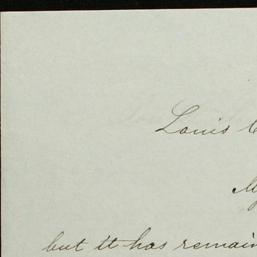 Louis
My
but it has remain